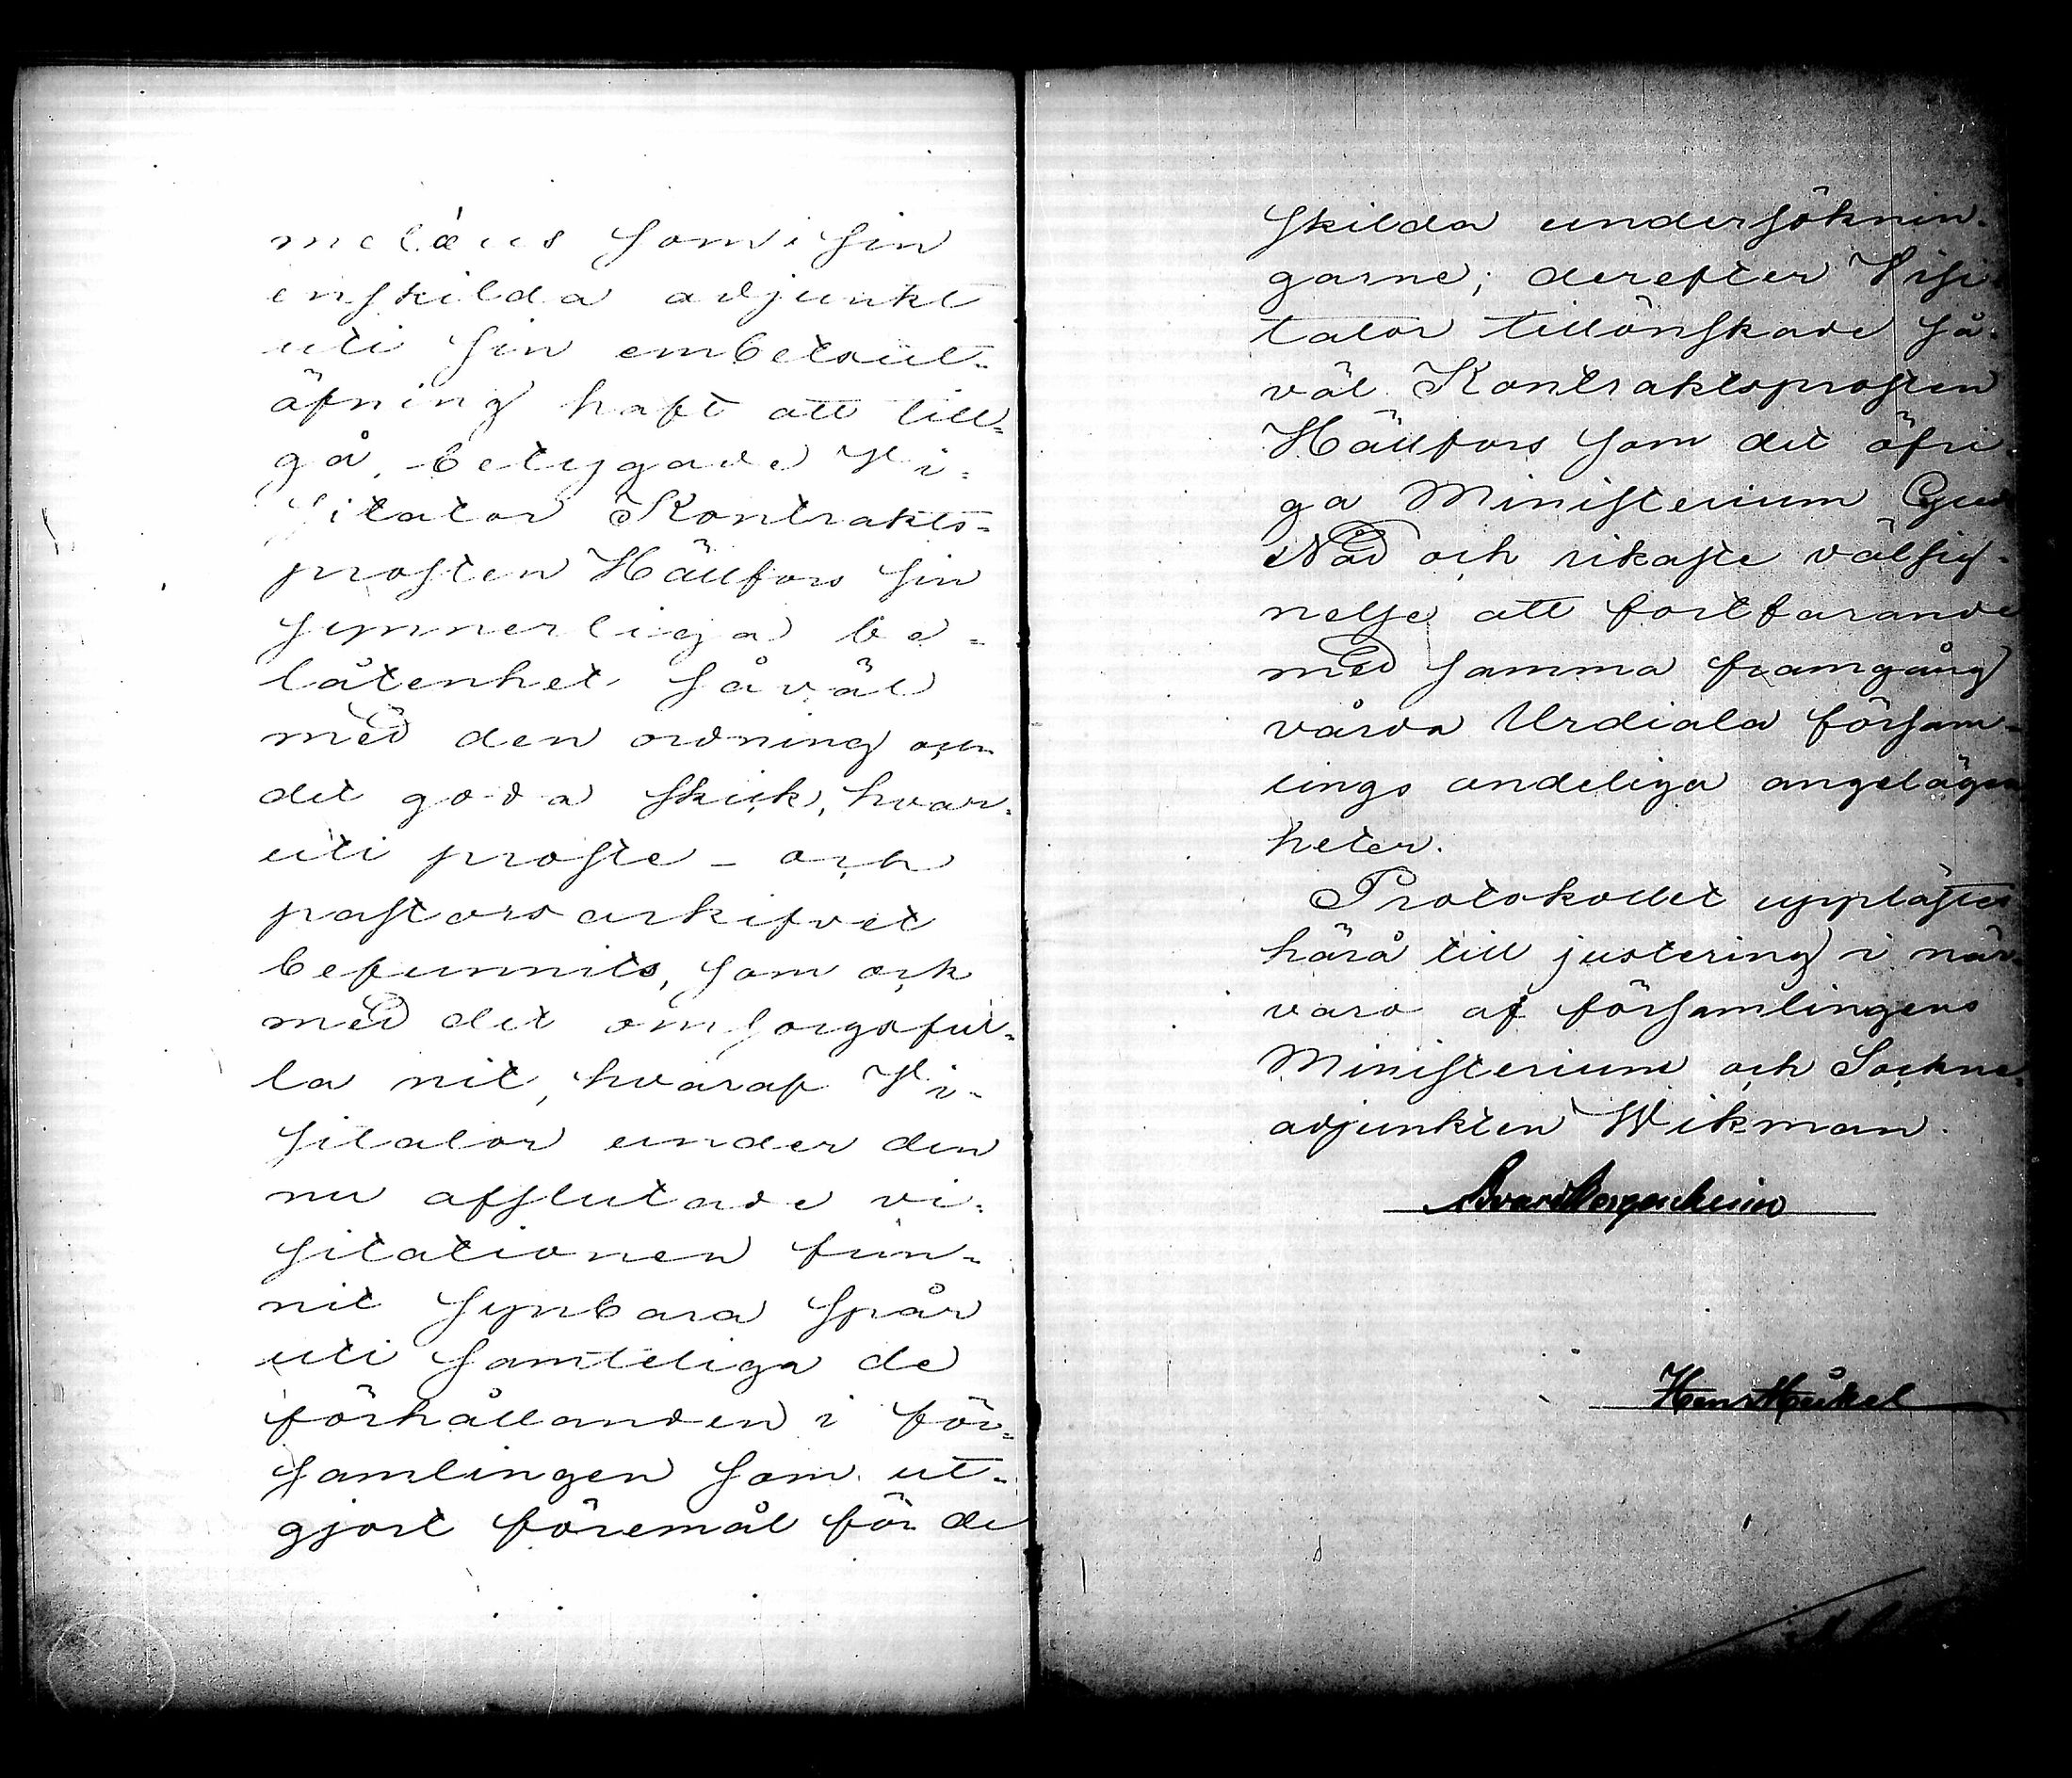 melæus som i sin
enskilda adjunkt
uti sin embetsut-
öfning haft att till-
gå, betygade Vi-
sitator Kontrakts-
prosten Hällfors sin
synnerliga be-
låtenhet såväl
med den ordning och
det goda skick, hvar-
uti proste- och
pastorsarkifvet
befunnits, som ock
med det omsorgsful-
la nit, hvaraf Vi-
sitator under den
nu afslutade vi-
sitationen fun-
nit synbara spår
uti samteliga de
förhållanden i för-
samlingen som ut-
gjort föremål för de
skilda undersöknin-
garne; derefter Visi-
tator tillönskade så-
väl Kontraktsprosten
Hällfors som det öfri-
ga Ministerium Guds
Nåd och rikaste välsig-
nelse att fortfarande
med samma framgång
vårda Urdiala försam-
lings andeliga angelägen
heter.
Protokollet upplästes
härå till justering i när-
varo af församlingens
Ministerium och Sockne-
adjunkten Wikman.
Edvard Bergenheim
Henr Heikel